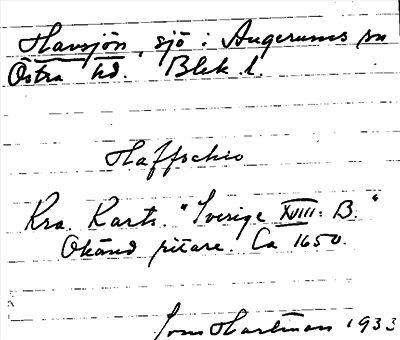 Havsjön, sjö i Augerums sn
Östra hd. Blek. l.
Haffschio
Kra. Kart. "Sverige XVIII: B."
Okänd ritare. Ca 1650.
Hartman 1933